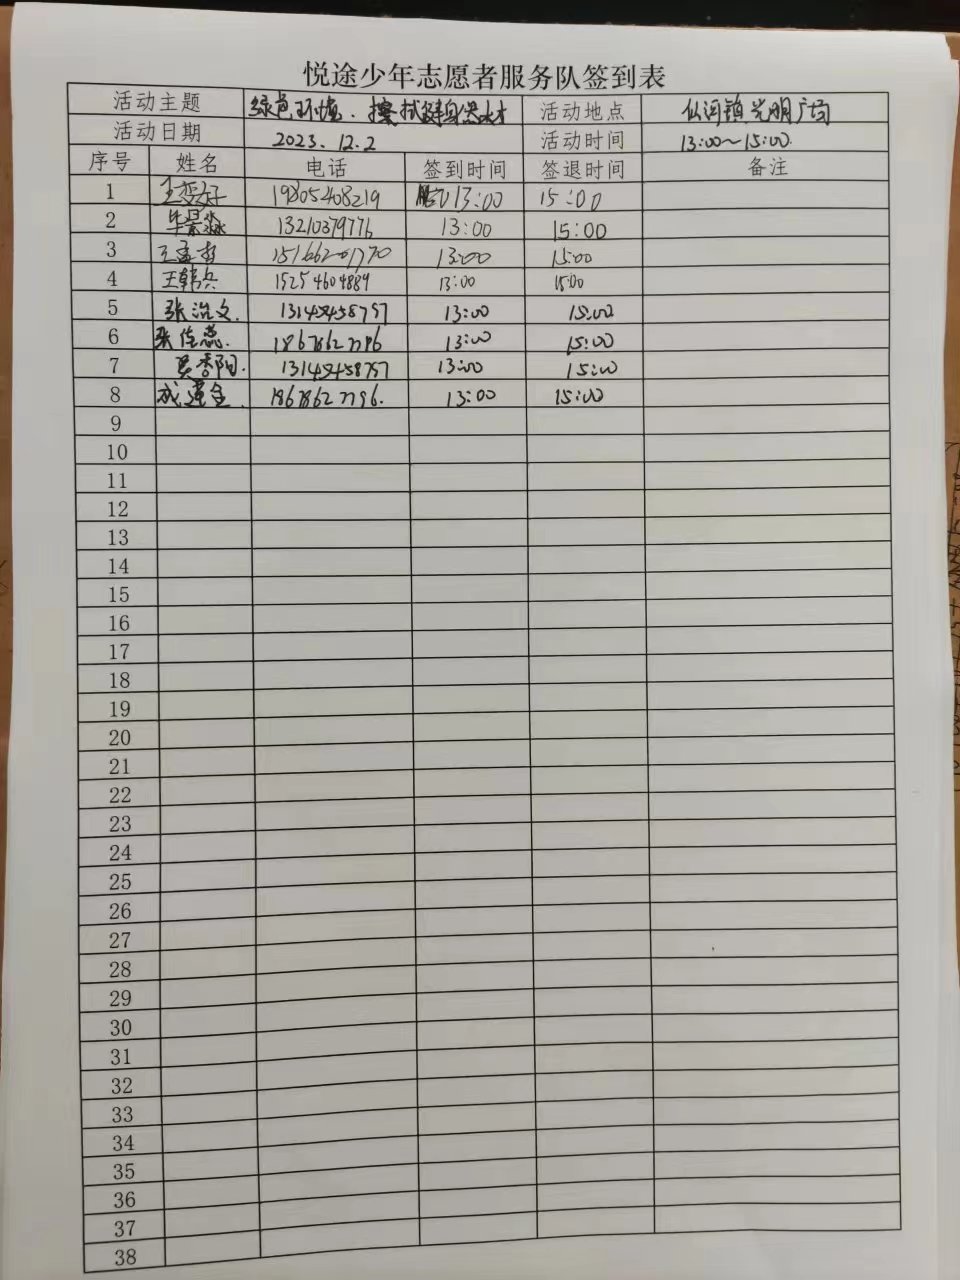 悦途少年志愿者服务队签到表
活动主题 绿色环境、擦拭健身器材 活动地点 仙河镇光明广场
活动日期 2023.12.2 活动时间 13:00~15:00
序号 姓名 电话 签到时间 签退时间 备注
1 19805408219 13:00 15:00
2 牛景淼 13210379776 13:00 15:00
3 王孟哲 13:00 15:00
4 王韩兵 15254604889 13:00 15:00
5 张浩文. 13:00 15:00
6 张佳蕊. 13:00 15:00
7 13:00 15:00
8 成建全. 13:00 15:00
9
10
11
12
13
14
15
16
17
18
19
20
21
22
23
24
25
26
27
28
29
30
31
32
33
34
35
36
37
38